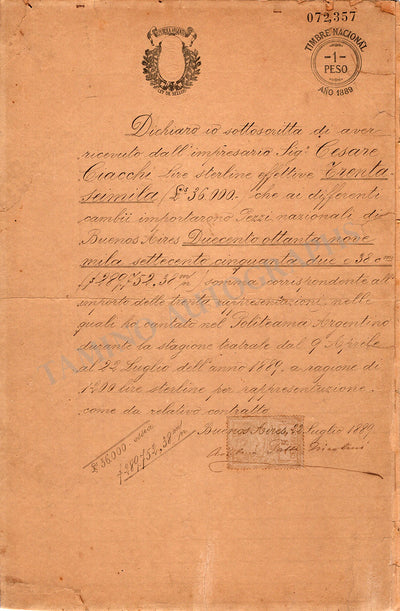 072,357
TIMBRE NACIONAL
-1-
PESO
AÑO 1889
Dichiaro io sottoscritta di aver
ricevuto dall'impresario Sig.r Cesare
Ciacchi lire sterline effettive Trenta
seimila / £s 36.000 -/ che ai differenti
cambii importarono Pezzi nazionali di
Buenos Aires Duecento ottanta nove
mila settecento cinquanta due e 38 c m/n
/ 289,752.38 m/n / somma corrispondente all'
importo delle trenta rappresentazioni, nelle
quali ho cantato nel Politeama Argentino
durante la stagione teatrale dal 9 Aprile
al 22 Luglio dell'anno 1889, a ragione di
1200 lire sterline per rappresentazione
come da relativo contratto
Buenos Aires, 22 Luglio 1889
£s 36000 - ossia
289,752.38 m/n
Adelina Patti Nicolini
TAMINO AUTOGRAPHS